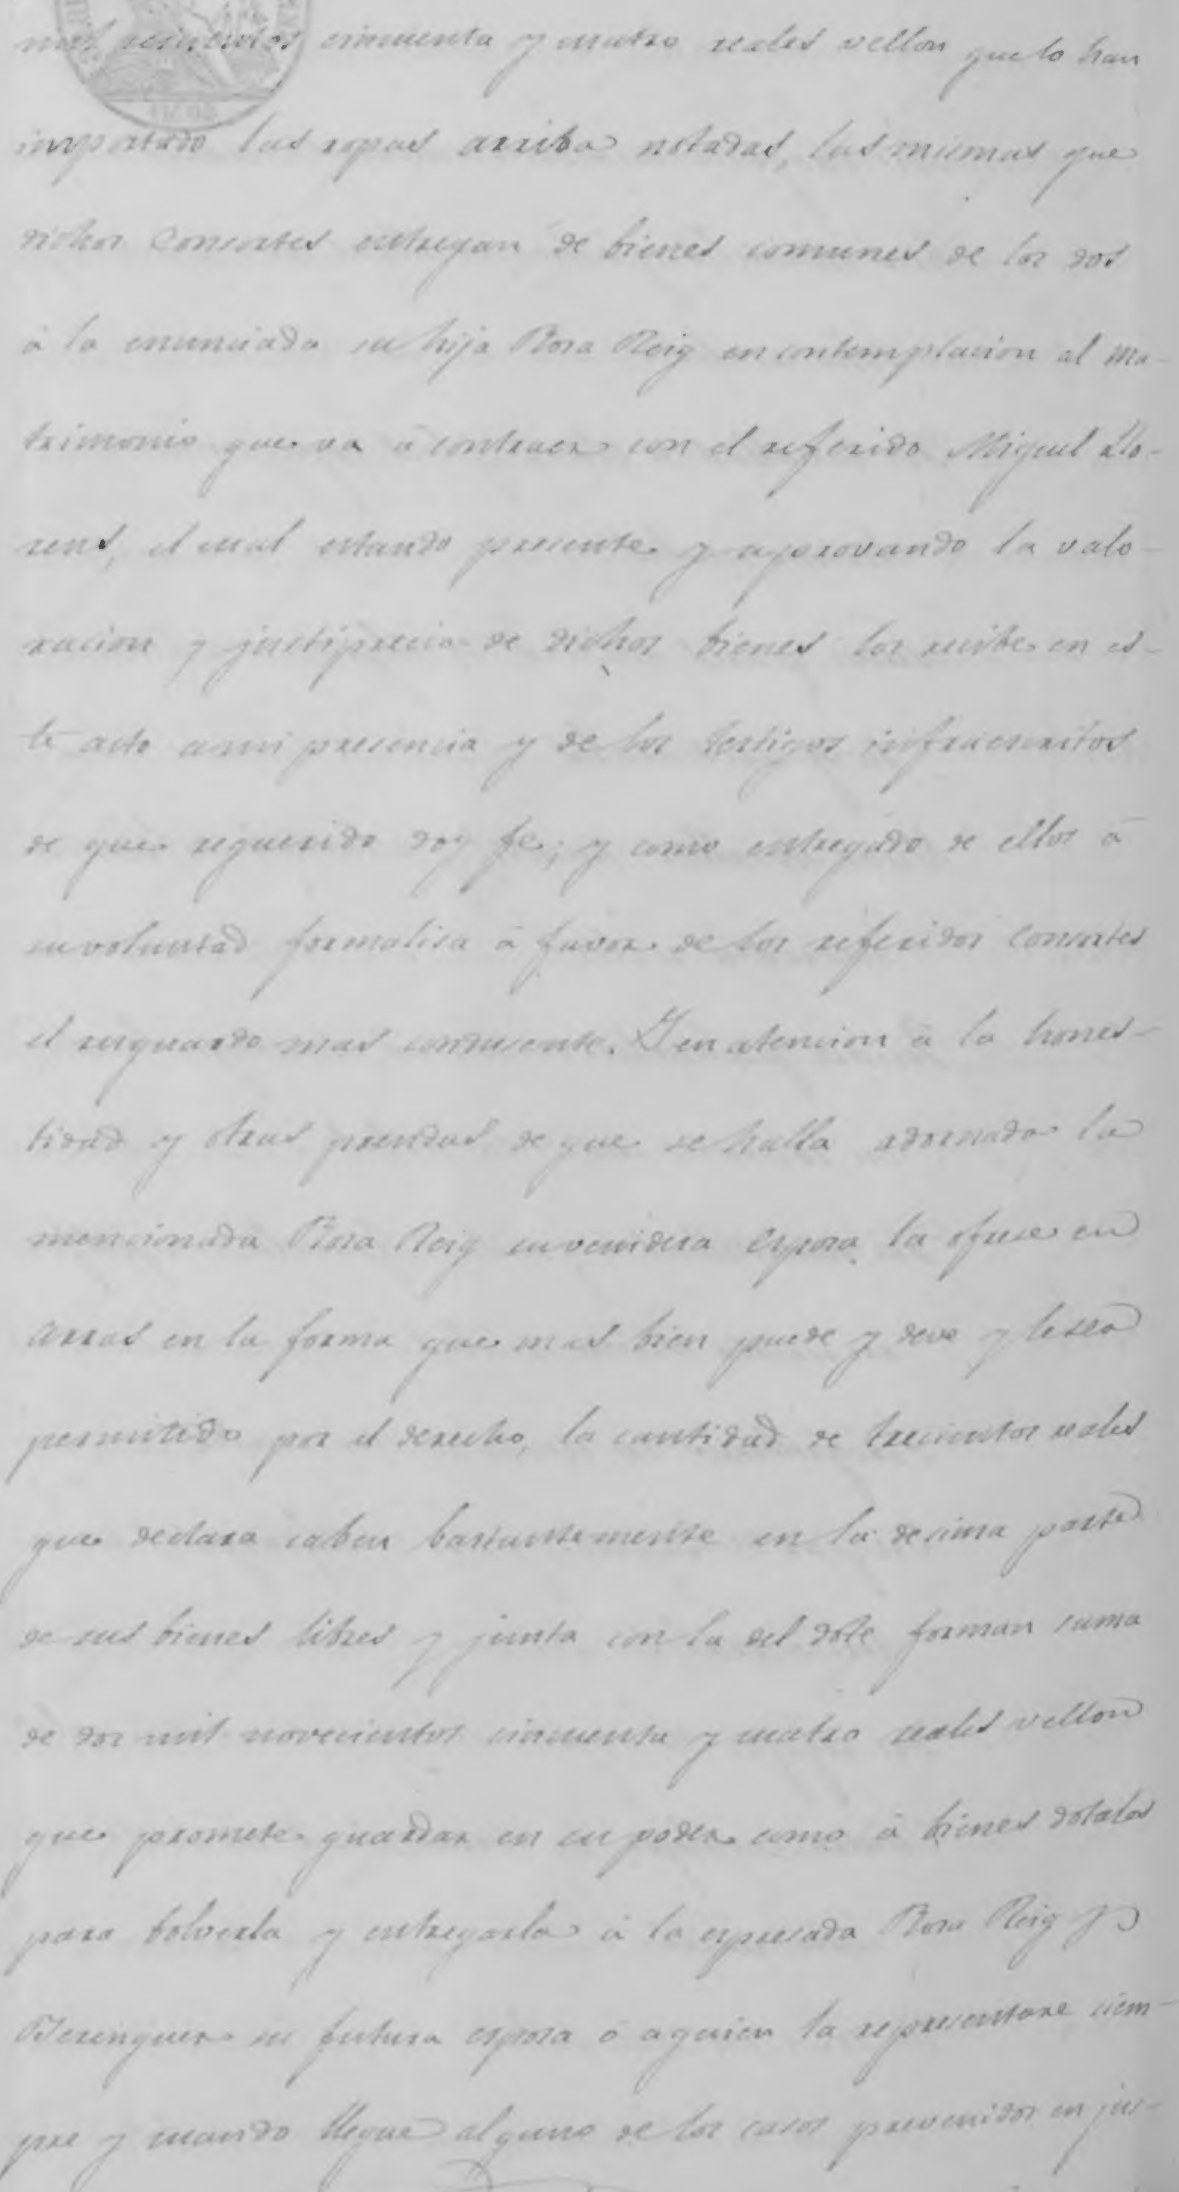 mil seiscientos cincuenta y cuatro reales vellon que lo han
importado las ropas arriba notadas, las mismas que
dichos Consortes entregan de bienes comunes de los dos
á la enunciada su hija Rosa Reig en contemplacion al ma-
trimonio que va á contraer con el referido Miguel Llo-
rens, el cual estando presente y aprovando la valo-
racion y justiprecio de dichos bienes los recibe en es-
te acto a mi presencia y de los testigos infraescritos
de que requerido doy fe; y como entregado de ellos á
su voluntad formalisa á favor de los referidos Consortes
el resguardo mas conducente. Y en atencion á la hones-
tidad y otras prendas de que se halla adornada la
mencionada Rosa Reig su venidera Esposa, la ofrece en
Arras en la forma que mas bien puede y deve y le sea
permitido por el derecho, la cantidad de trecientos reales
que declara caben bastantemente en la decima parte
de sus bienes libres y junta con la del dote forman suma
de dos mil novecientos cincuenta y cuatro reales vellon
que promete guardar en su poder como á bienes dotales
para bolverla y entregarla á la espresada Rosa Reig y
Berenguer su futura esposa ó a quien la representare siem-
pre y cuando llegue alguno de los casos prevenidos en jus-